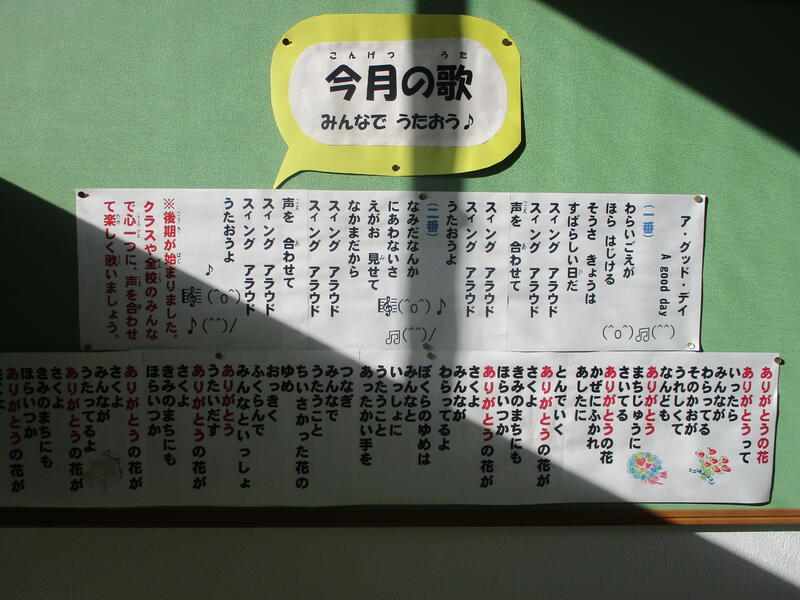 こんげつ うた
今月の歌
みんなで うたおう♪
ア・グッド・デイ
A good day
(^o^)♫(^^)
(一番)
わらいごえが
ほら はじける
そうさ きょうは
すばらしい日だ
スィング アラウド
スィング アラウド
声を 合わせて
スィング アラウド
スィング アラウド
うたおうよ
(二番)
なみだなんか
にあわないさ
えがお 見せて
なかまだから
スィング アラウド
スィング アラウド
声を 合わせて
スィング アラウド
スィング アラウド
うたおうよ
※後期が始まりました。
クラスや全校のみんな
で心一つに、声を合わせ
て楽しく歌いましょう。
ありがとうの花
ありがとうって
いったら
みんなが
わらってる
そのかおが
うれしくて
なんども
ありがとう
まちじゅうに
さいてる
ありがとうの花
かぜにふかれ
あしたに
とんでいく
ありがとうの花が
さくよ
きみのまちにも
ほらいつか
ありがとうの花が
さくよ
みんなが
わらってるよ
ぼくらのゆめは
みんなと
いっしょに
うたうこと
あったかい手を
つなぎ
みんなで
うたうこと
ちいさかった花の
ゆめ
おっきく
ふくらんで
みんなといっしょ
ありがとう
うたいだす
ありがとうの花が
さくよ
きみのまちにも
ほらいつか
ありがとうの花が
さくよ
みんなが
うたってるよ
ありがとうの花が
さくよ
きみのまちにも
ほらいつか
ありがとうの花が